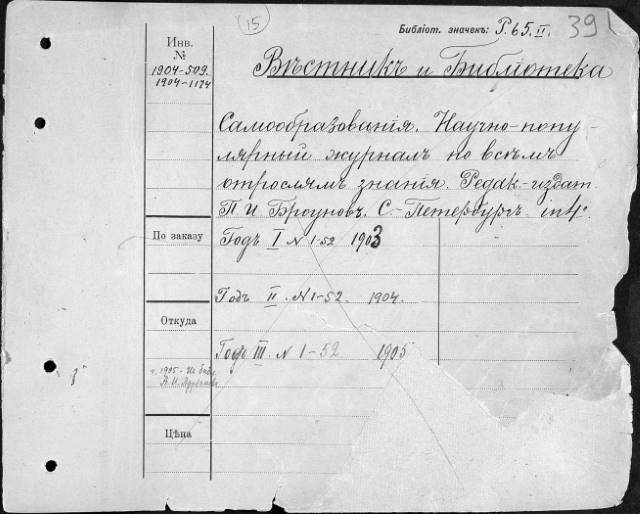 15
Библіот. значекъ: Р. 65. II. 391
Инв.
№
1904-509.
1904-1174
Вѣстникъ и Библіотека
Самообразованія. Научно-попу-
лярный журналъ по всѣмъ
отрослямъ знанія. Редак-издат.
П И Броуновъ. С.-Петербургъ. in 4°
По заказу
Годъ I N 1-52 1903
Годъ II. N 1-52. 1904.
Откуда
Годъ III. N 1-52 1905
1905 - Из библ.
А. И.
Цѣна